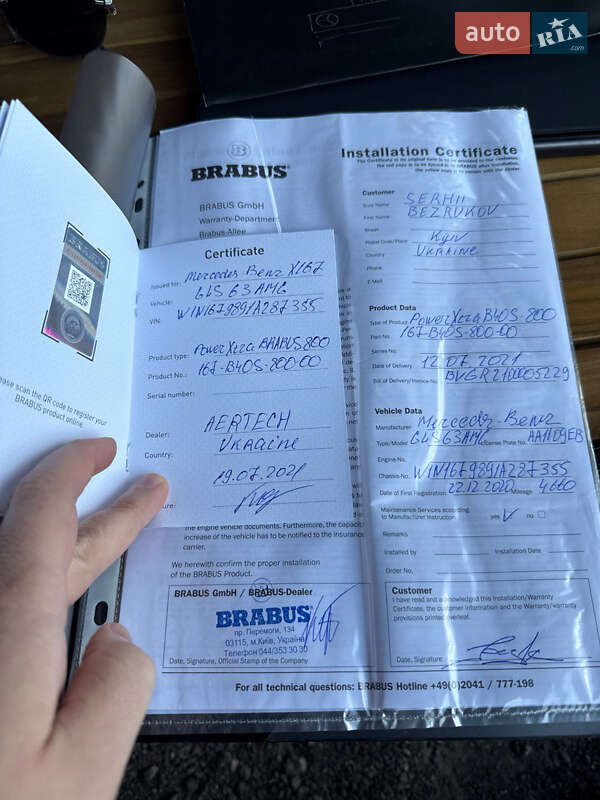 auto RIA .com
BRABUS
Installation Certificate
BRABUS GmbH
Warranty-Department
Brabus-Allee
Customer
SERHII
First Name BEZRUKOV
Street
Postal Code/Place Kyiv
Country UKRAINE
Phone
E-Mail
Product Data
Type of Product PowerXtra B40S-800
Part-No. 167-B40S-800-00
Series No.
Date of Delivery 12.07.2021
Bill of Delivery/Invoice-No.
Vehicle Data
Manufacturer Mercedes-Benz
Type/Model GLS 63 AMG License Plate No. AA1109EB
Engine No.
Chassis-No. W1N1679891A287355
Date of First Registration 22.12.2020 Mileage 4660
Maintenance Services according
to Manufacturer Instruction: yes no
Remarks
Installed by Installation Date
Order No.
Customer
I have read and acknowledged this Installation/Warranty
Certificate, the customer information and the Warranty/warranty
provisions printed overleaf.
Date, Signature
BRABUS
please scan the QR code to register your
BRABUS product online.
Certificate
Issued for: Mercedes Benz X167
Vehicle: GLS 63 AMG
VIN: W1N1679891A287355
Product type: PowerXtra BRABUS 800
Product No.: 167-B40S-800-00
Serial number:
Dealer: AERTECH
Country: Ukraine
19.07.2021
the engine vehicle documents. Furthermore, the capacity
increase of the vehicle has to be notified to the insurance
carrier.
We herewith confirm the proper installation
of the BRABUS Product.
BRABUS GmbH / BRABUS-Dealer
BRABUS
пр. Перемоги, 134
03115, м.Київ, Україна
Телефон 044/353 30 30
Date, Signature, Official Stamp of the Company
For all technical questions: BRABUS Hotline +49(0)2041 / 777-198